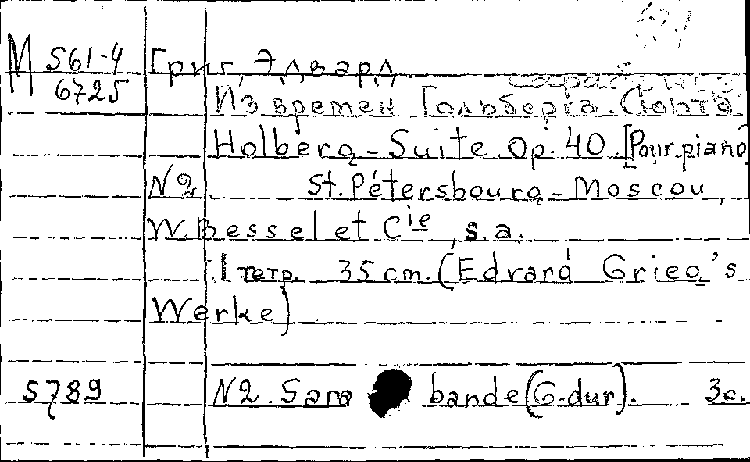 М 561-4 Григ, Эдвард
6725 Из времен Гольберга. Сюита.
Holberg-Suite Op. 40. [Pour piano]
N2 St. Pétersbourg-Moscou,
W. Bessel et Cie, s.a.
1 тетр. 35 cm. (Edvard Grieg's
Werke)
5789 N2. Sara bande (G-dur). 3с.